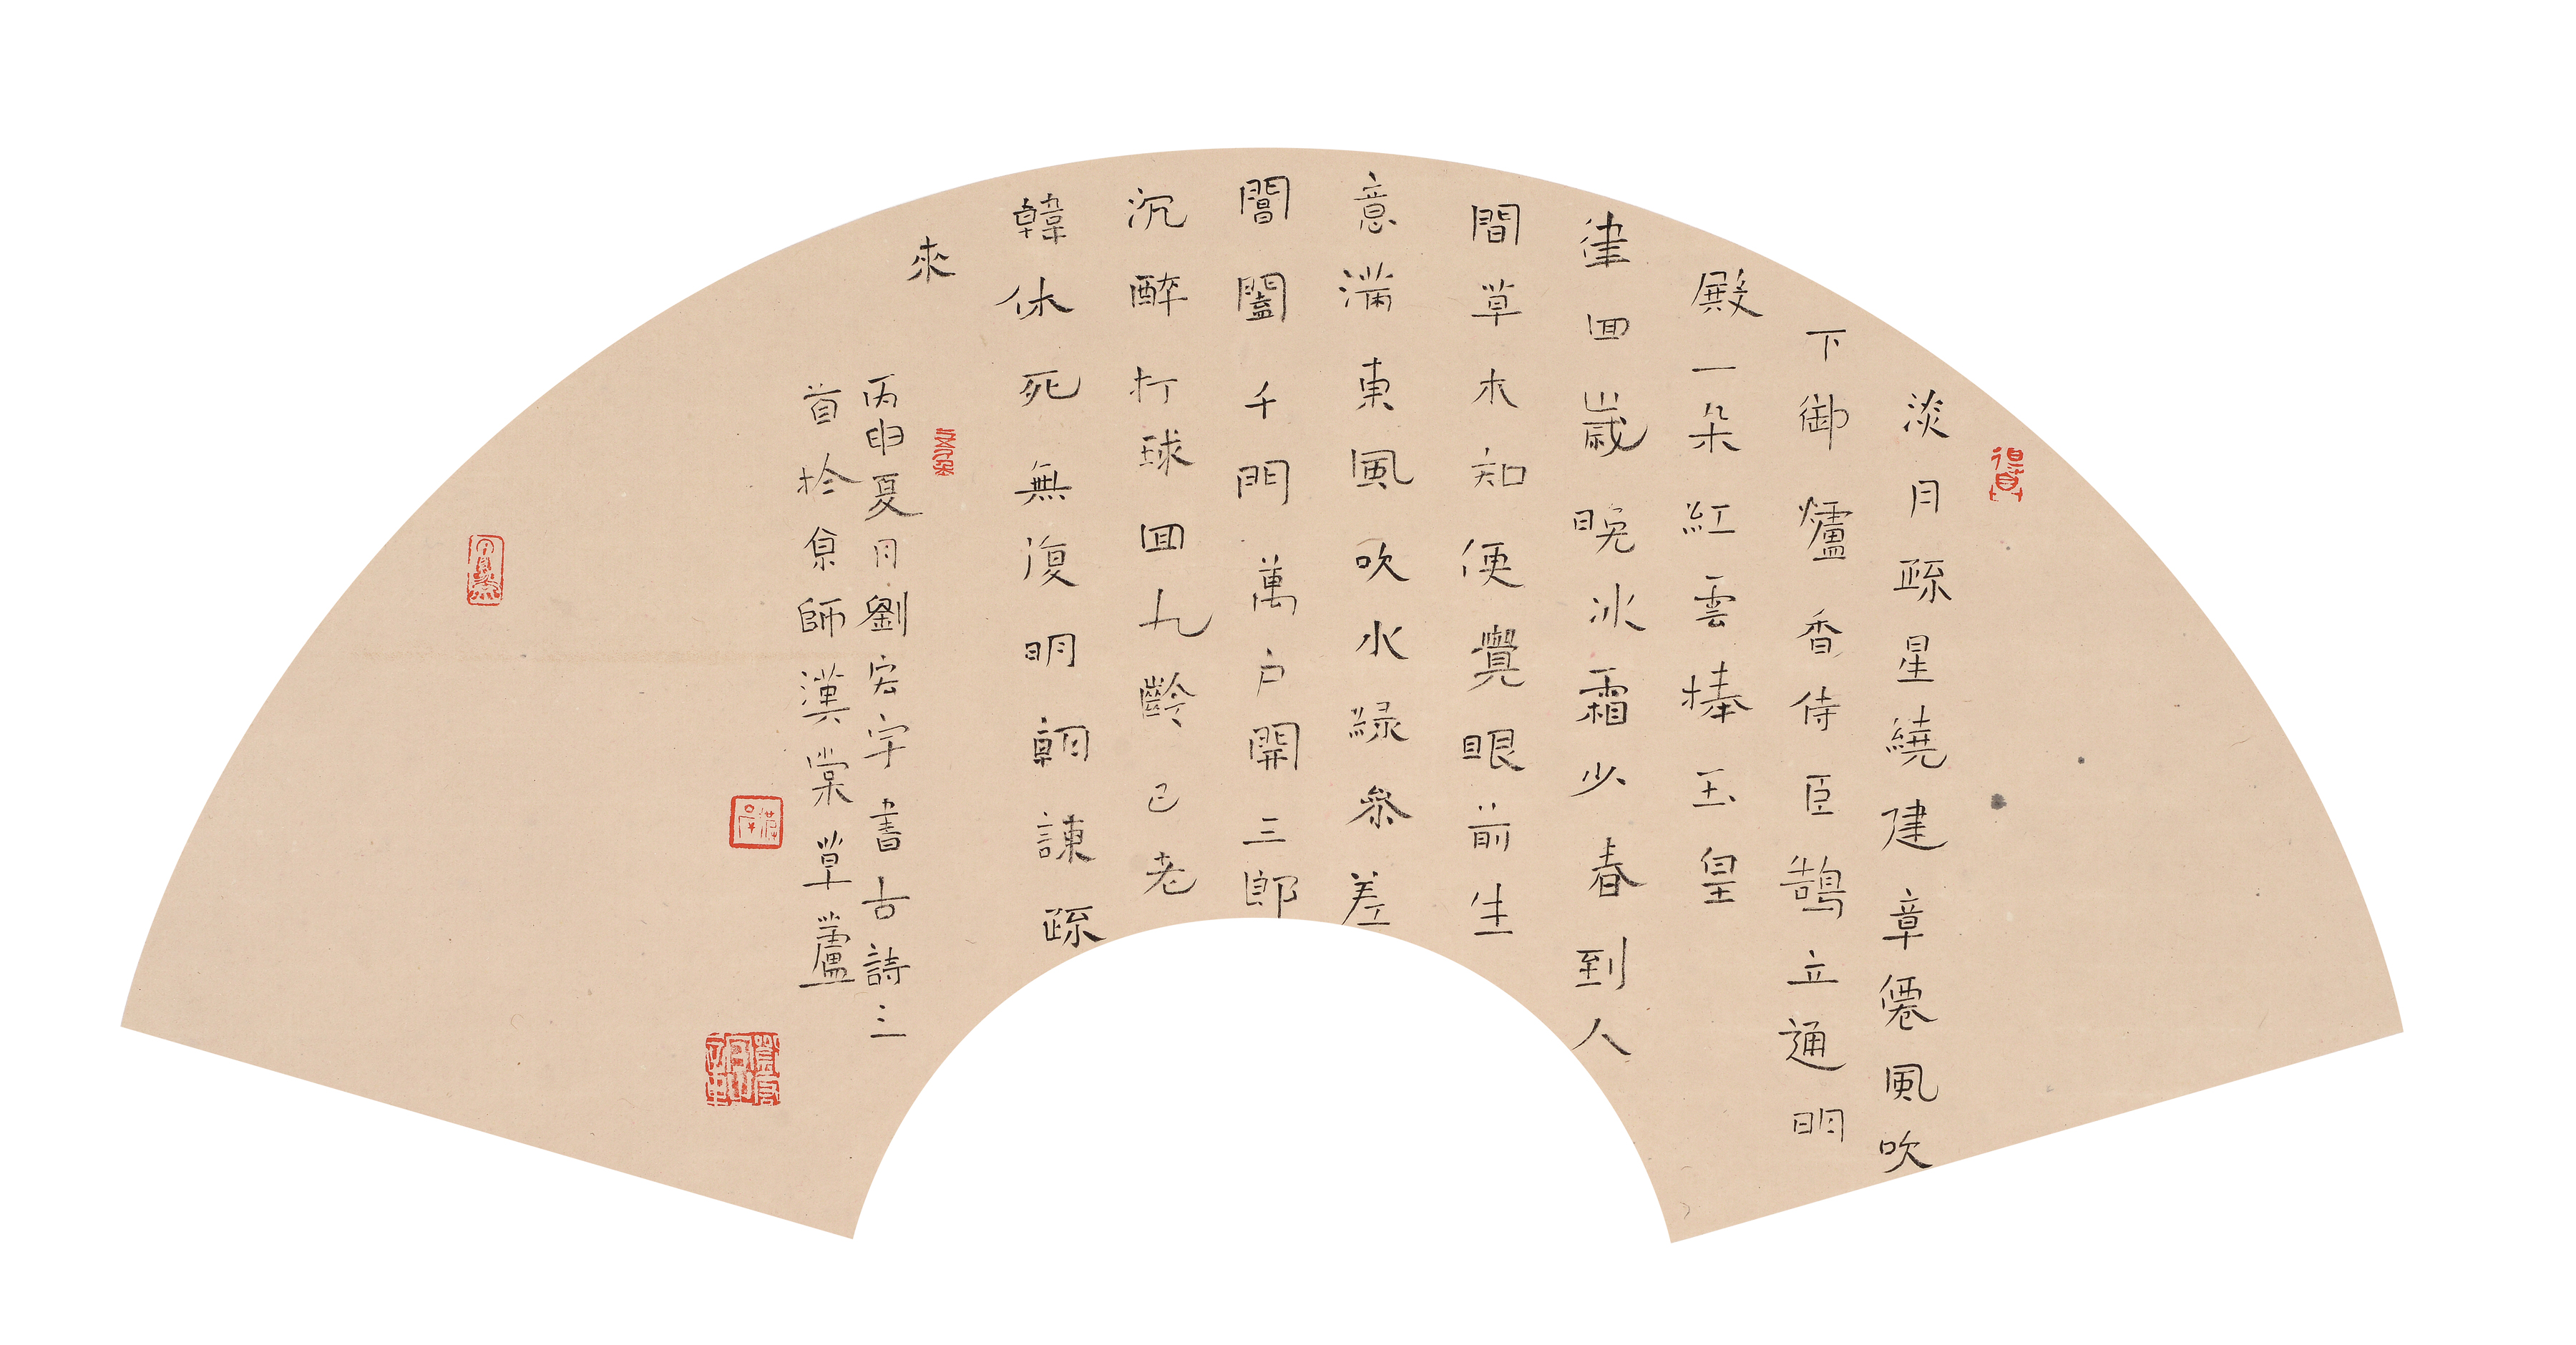 淡月疏星繞建章僊風吹
下御爐香侍臣鵠立通明
殿一朵紅雲捧玉皇
律囬歲晚冰霜少春到人
間草木知便覺眼前生
意滿東風吹水緑參差
閶闔千門萬戶開三郎
沉醉打球囬九齡已老
韓休死無復明朝諫疏
來
丙申夏月劉宏宇書古詩三
首於亰師漢棠草蘆